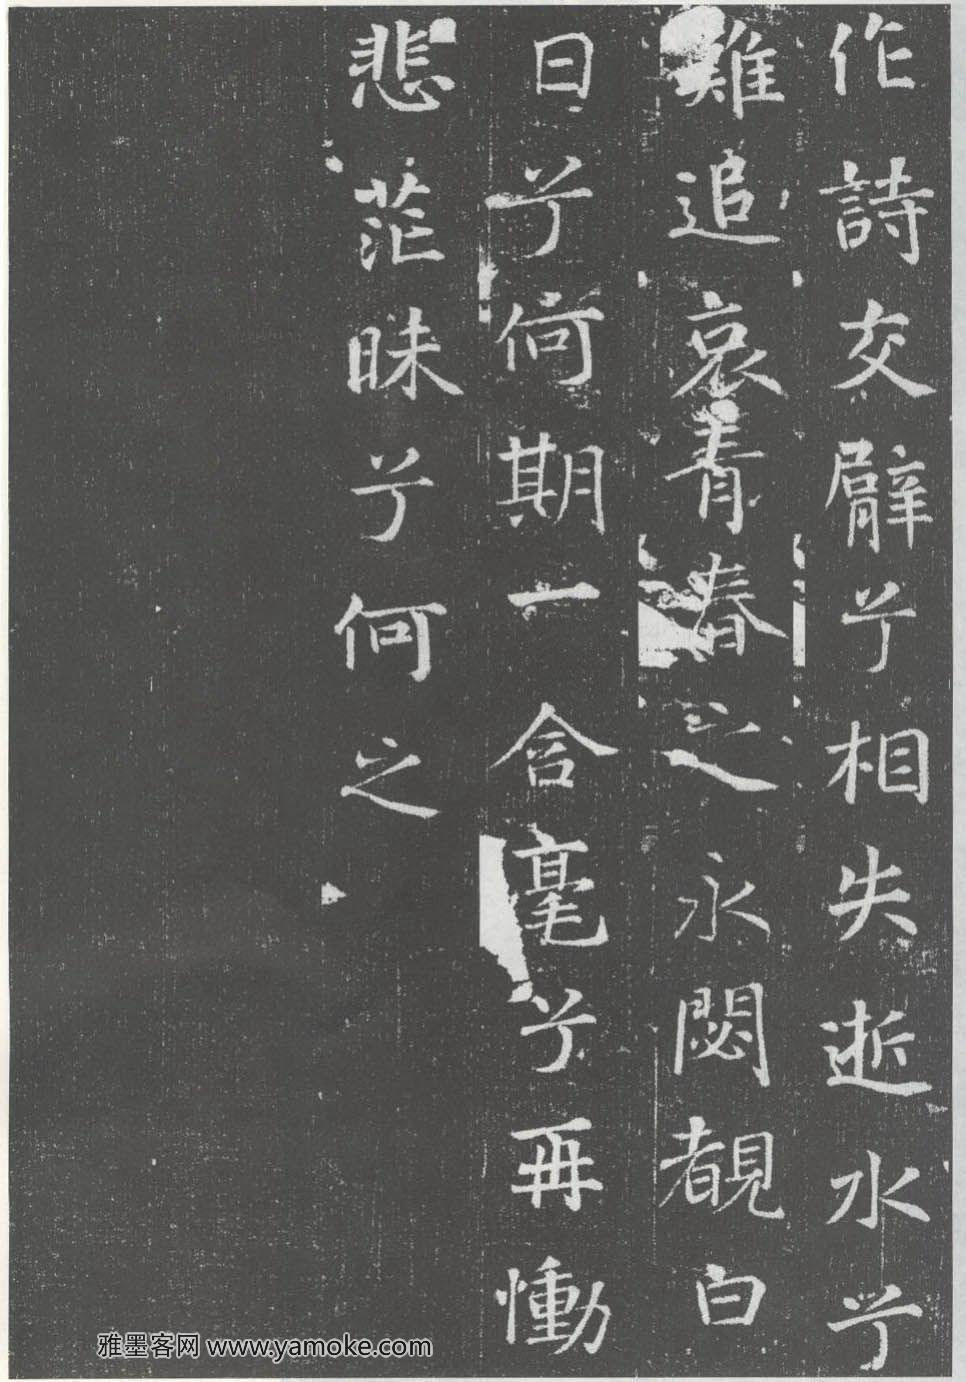 作詩交臂兮相失逝水兮
難追哀青春之永閟覩白
日兮何期一含毫兮再慟
悲茫昧兮何之
雅墨客网 www.yamoke.com